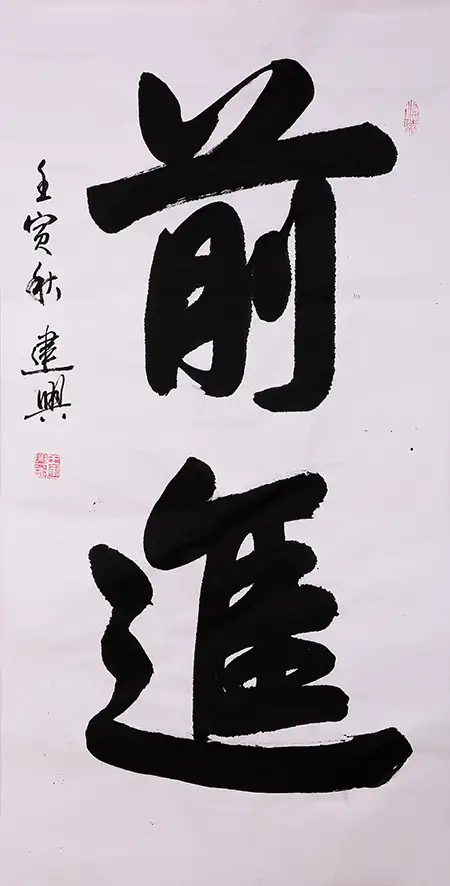 前進
壬寅秋建興